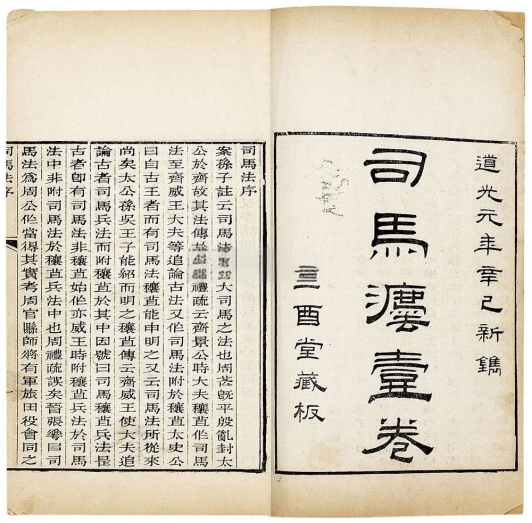 道光元年辛巳新鐫
司馬灋壹卷
酉堂藏板
司馬法序
案孫子註云司馬大司馬之法也周武旣平殷亂封太
公於齊故其法傳禮疏云齊景公時大夫穰苴作司馬
法至齊威王大夫等追論古法又作司馬法附於穰苴太史公
曰自古王者而有司馬法穰苴能申明之又云司馬法所從來
尚矣太公孫吳王子能紹而明之穰苴傳云齊威王使大夫追
論古者司馬兵法而附穰苴於其中因號曰司馬穰苴兵法是
古者卽有司馬法非穰苴始作亦威王時附穰苴兵法於司馬
法中非附司馬法於穰苴兵法中也周禮疏誤矣晉張華曰司
馬法爲周公作當得其實考周官縣師將有軍旅田役會同之
司馬法序